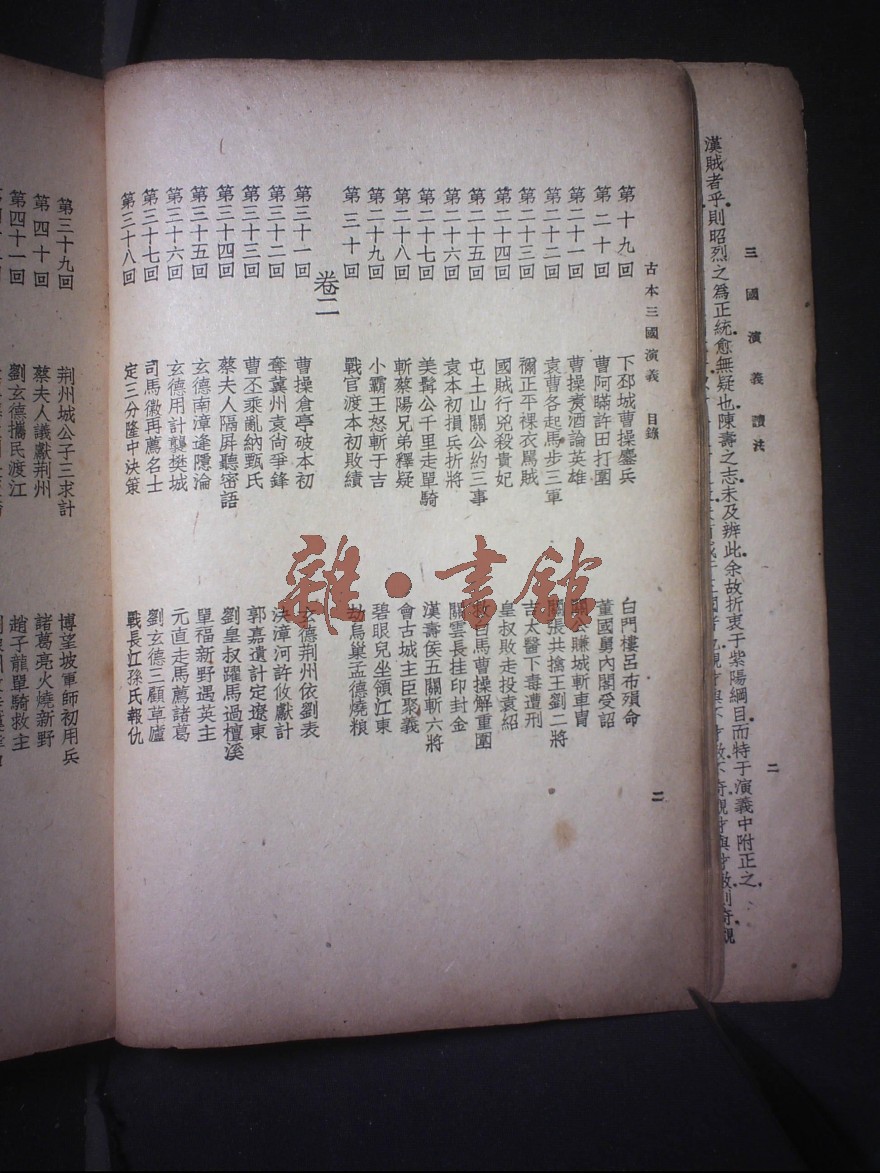 三國演義讀法
二
漢賊者乎則昭烈之爲正統愈無疑也陳壽之志未及辨此余故折衷于紫陽綱目而特于演義中附正之
古本三國演義 目錄
二
第十九回 下邳城曹操鏖兵 白門樓呂布殞命
第二十回 曹阿瞞許田打圍 董國舅內閣受詔
第二十一回 曹操煑酒論英雄 關公賺城斬車冑
第二十二回 袁曹各起馬步三軍 關張共擒王劉二將
第二十三回 禰正平裸衣罵賊 吉太醫下毒遭刑
第二十四回 國賊行兇殺貴妃 皇叔敗走投袁紹
第二十五回 屯土山關公約三事 救白馬曹操解重圍
第二十六回 袁本初損兵折將 關雲長挂印封金
第二十七回 美髯公千里走單騎 漢壽侯五關斬六將
第二十八回 斬蔡陽兄弟釋疑 會古城主臣聚義
第二十九回 小霸王怒斬于吉 碧眼兒坐領江東
第三十回 戰官渡本初敗績 劫烏巢孟德燒粮
卷二
第三十一回 曹操倉亭破本初 玄德荆州依劉表
第三十二回 奪冀州袁尙爭鋒 決漳河許攸獻計
第三十三回 曹丕乘亂納甄氏 郭嘉遺計定遼東
第三十四回 蔡夫人隔屏聽密語 劉皇叔躍馬過檀溪
第三十五回 玄德南漳逢隱淪 單福新野遇英主
第三十六回 玄德用計襲樊城 元直走馬薦諸葛
第三十七回 司馬徽再薦名士 劉玄德三顧草廬
第三十八回 定三分隆中決策 戰長江孫氏報仇
第三十九回 荆州城公子三求計 博望坡軍師初用兵
第四十回 蔡夫人議獻荆州 諸葛亮火燒新野
第四十一回 劉玄德攜民渡江 趙子龍單騎救主
雜·書館